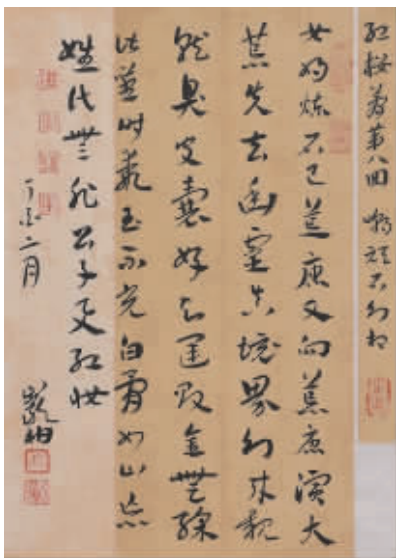 红楼梦第八回 嘲頑石幻相
女媧煉石已荒唐又向荒唐演大
荒失去幽靈真境界幻來親
就臭皮囊好知運敗金無綵
堪嘆时乖玉不光白骨如山忘
姓氏無非公子与红妝
二月